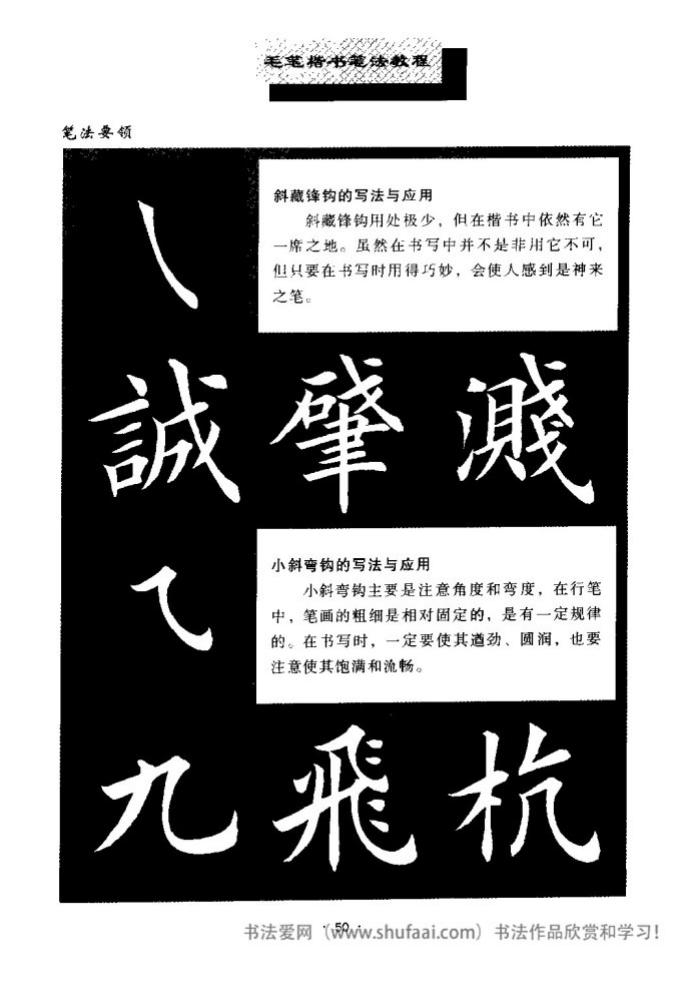 毛笔楷书笔法教程
笔法要领
斜藏锋钩的写法与应用
斜藏锋钩用处极少，但在楷书中依然有它
一席之地。虽然在书写中并不是非用它不可，
但只要在书写时用得巧妙，会使人感到是神来
之笔。
誠 肈 濺
小斜弯钩的写法与应用
小斜弯钩主要是注意角度和弯度，在行笔
中，笔画的粗细是相对固定的，是有一定规律
的。在书写时，一定要使其遒劲、圆润，也要
注意使其饱满和流畅。
九 飛 杭
· 50 ·
书法爱网（www.shufaai.com）书法作品欣赏和学习！